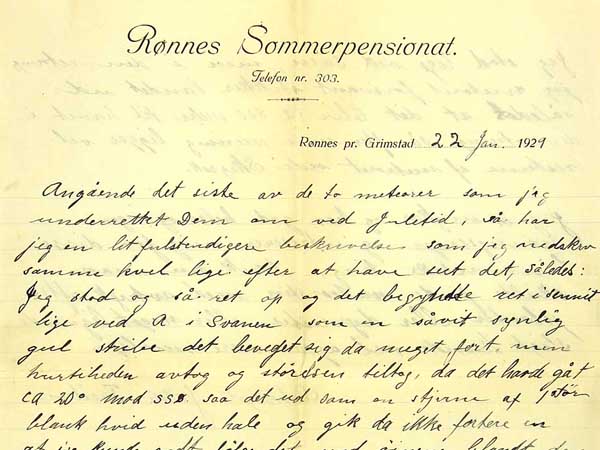 Rønnes Sommerpensionat.
Telefon nr. 303.
Rønnes pr. Grimstad 22 Jan. 1929
Angående det siste av de to meteorer som jeg
underrettet Dem om ved Juletid, så har
jeg en lit fulstendigere beskrivelse som jeg nedskrev
samme kvel lige efter at have set det, således:
Jeg stod og så ret op og det begyndte ret i senit
lige ved A i Svanen som en såvit synlig
gul stribe det beveget sig da meget fort men
hurtiheden avtog og størelsen tiltog, da det havde gåt
ca 20° mod sso saa det ud som en stjerne af 1 stør
blank hvid uden hale og gik da ikke fortere en
at jeg kunde godt det med